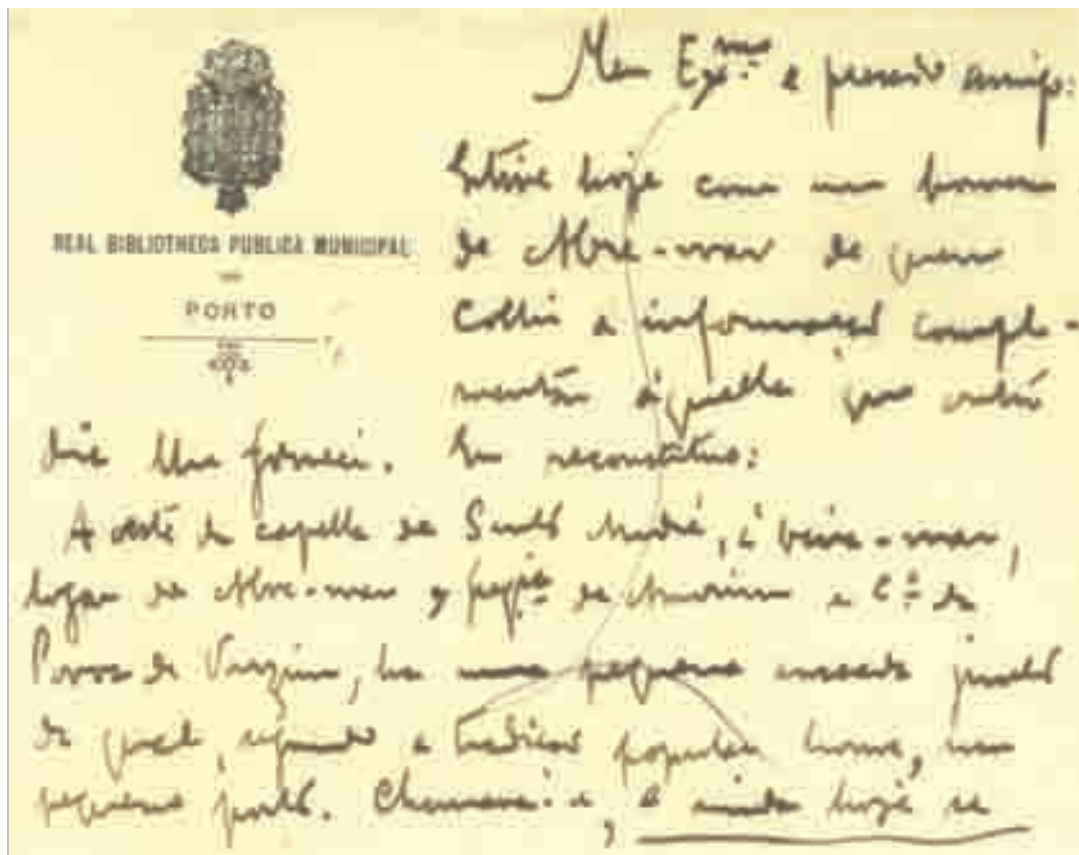 REAL BIBLIOTHECA PUBLICA MUNICIPAL
PORTO
Meu Ex.mo e presado amigo:
Estive hoje com um homem
de Abre-mar de quem
colhi a informação comple-
mentar áquella que
dia lhe forneci. Eu reconstituo:
A oeste da capella de Santo André, á beira-mar,
logar de Abre-mar, freg.ia de Amorim e C.º da
Povoa de Varzim, ha uma pequena enseada junto
da qual, segundo a tradição popular houve, um
pequeno porto. Chamava-se, e ainda hoje se